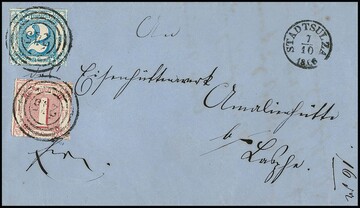 2
1
STADTSULZA
7
10
1866
An
Eisenhüttenwerk
Amalienhütte
b.
Laasphe.